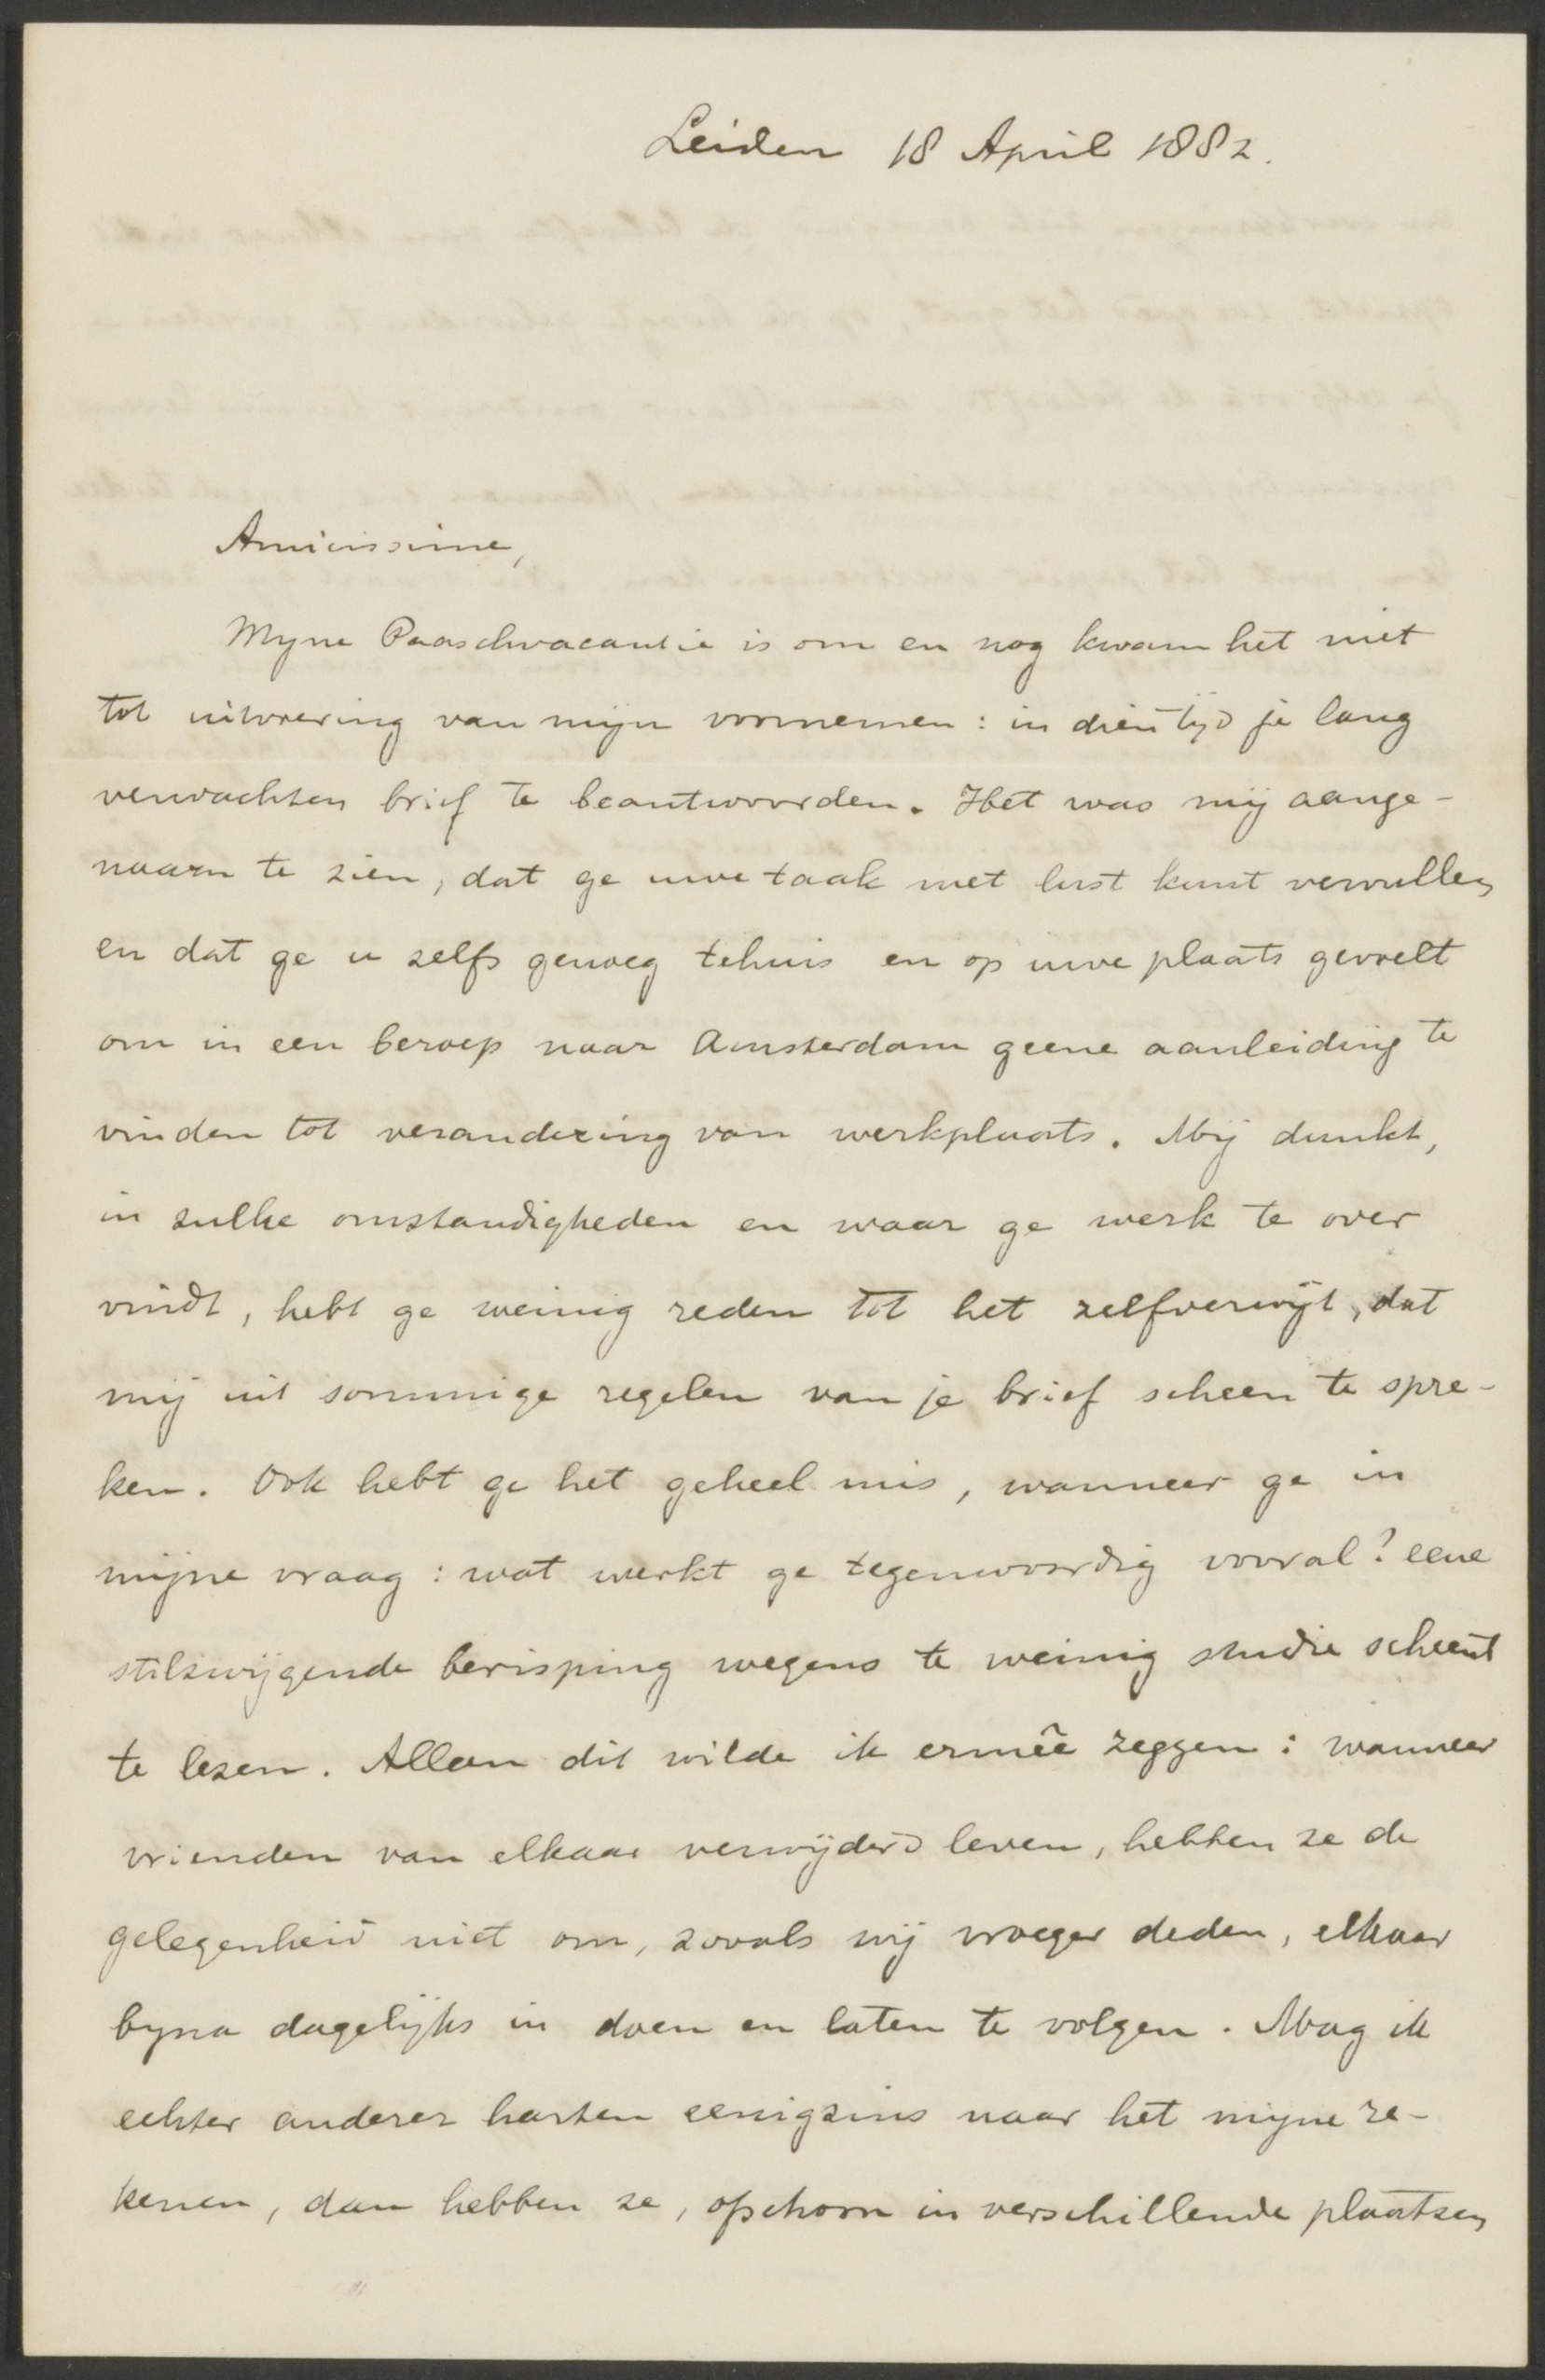 Leiden 18 April 1882.
Amicissime,
Myne Paaschvacantie is om en nog kwam het niet
tot uitvoering van mijn voornemen: in dien tijd je lang
verwachten brief te beantwoorden. Het was mij aange-
naam te zien, dat ge uwe taak met lust kunt vervullen
en dat ge u zelfs genoeg tehuis en op uwe plaats gevoelt
om in een beroep naar Amsterdam geene aanleiding te
vinden tot verandering van werkplaats. Mij dunkt,
in zulke omstandigheden en waar ge werk te over
vindt, hebt ge weinig reden tot het zelfverwijt, dat
mij uit sommige regelen van je brief scheen te spre-
ken. Ook hebt ge het geheel mis, wanneer ge in
mijne vraag: wat werkt ge tegenwoordig vooral? eene
stilzwijgende berisping wegens te weinig studie scheent
te lezen. Alleen dit wilde ik ermeê zeggen: wanneer
vrienden van elkaar verwijderd leven, hebben ze de
gelegenheid niet om, zooals wij vroeger deden, elkaar
byna dagelijks in doen en laten te volgen. Mag ik
echter anderer harten eenigzins naar het mijne re-
kenen, dan hebben ze, ofschoon in verschillende plaatsen